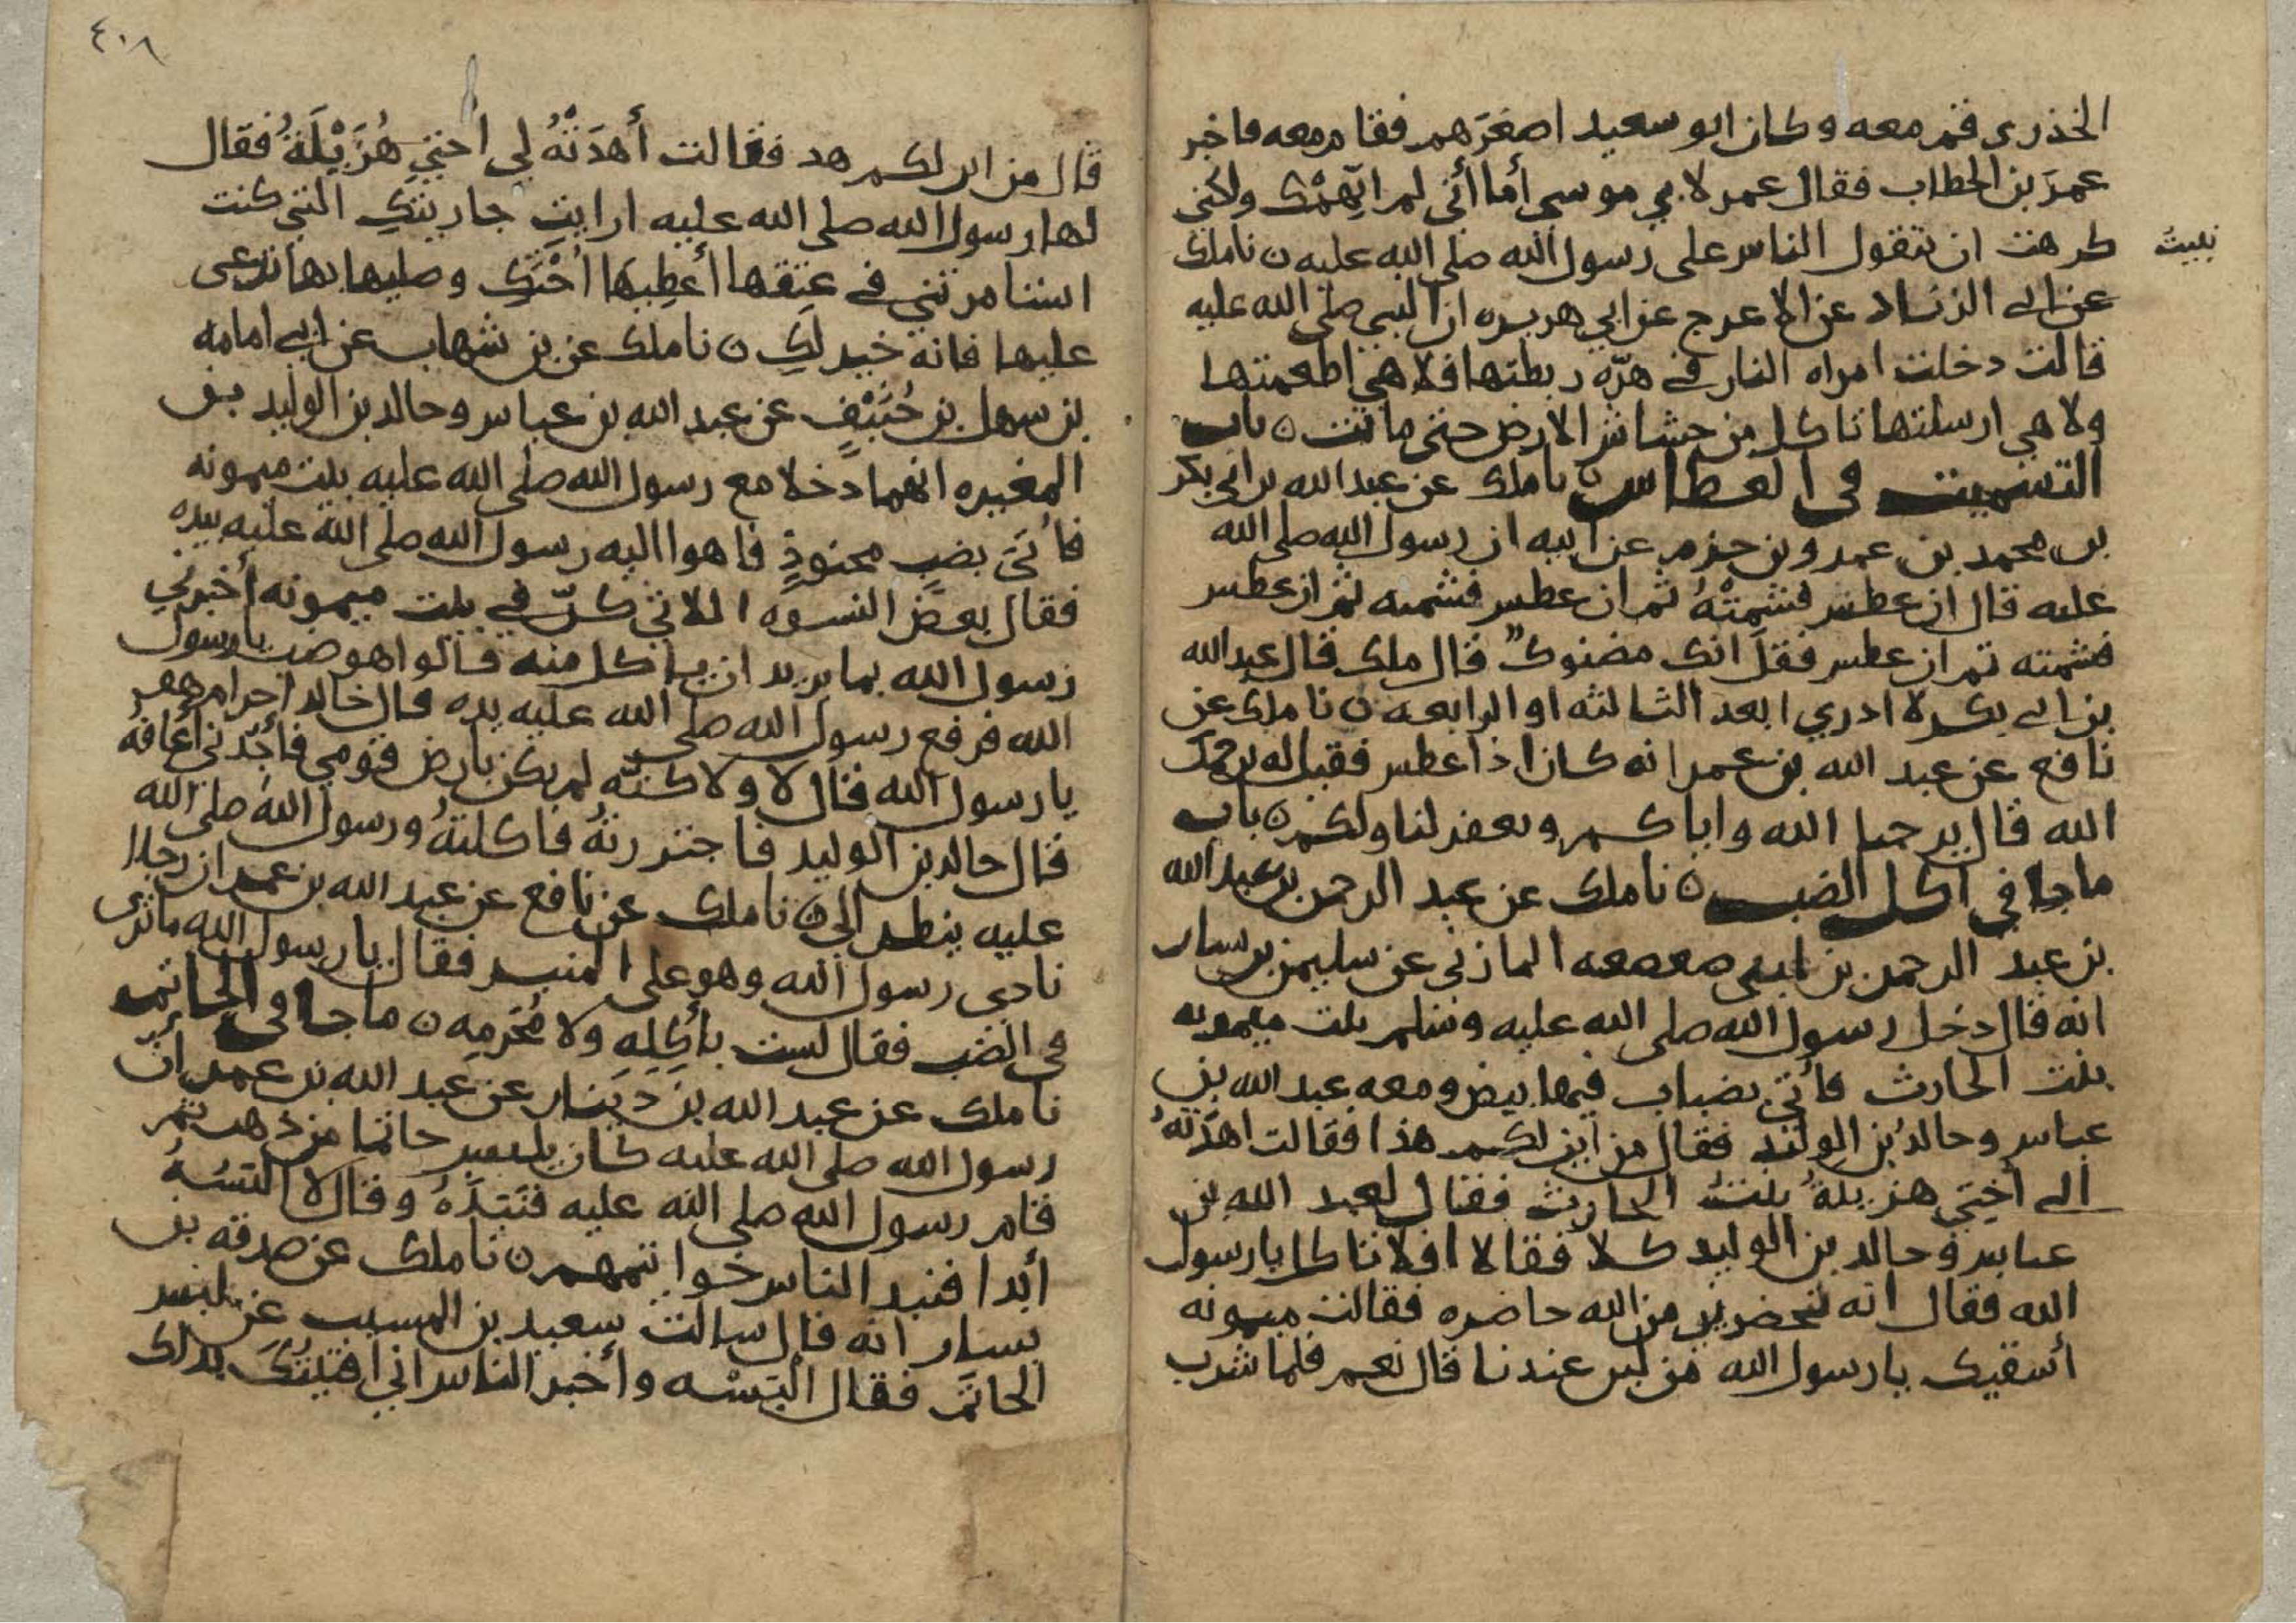 الخدرى قم معه وكان ابو سعيد اصغرهم فقام معه فاخبر
عمرَ بن الخطاب فقال عمر لابي موسى أما أني لم اتّهِمْك ولكني
كرهت ان يتقول الناس على رسول الله صلى الله عليه ن نا ملك
عن ابي الزناد عن الاعرج عن ابي هريره ان النبي صلى الله عليه
قالت دخلت امراه النار في هرّه ربطتها فلا هي اطعمتها
ولا هي ارسلتها تاكل من حشاش الارض حتى ماتت ن باب
التشميت في العطاس ن نا ملك عن عبد الله بن ابي بكر
بن محمد بن عمرو بن حزم عن ابيه ان رسول الله صلى الله
عليه قال ان عطس فشمته ثم ان عطس فشمته ثم ان عطس
فشمته ثم ان عطس فقل انك مضنوك قال ملك قال عبد الله
بن ابي بكر لا ادري ابعد الثالثه او الرابعه ن نا ملك عن
نافع عن عبد الله بن عمر انه كان اذا عطس فقيل له يرحمك
الله قال يرحمنا الله واياكم ويغفر لنا ولكم ن باب
ما جا في اكل الضب ن نا ملك عن عبد الرحمن بن عبد الله
بن عبد الرحمن بن ابي صعصعه المازني عن سليمن بن يسار
انه قال دخل رسول الله صلى الله عليه وسلم بيت ميمونه
بنت الحارث فأتي بضباب فيها بيض ومعه عبد الله بن
عباس وخالدُ بن الوليد فقال من اين لكم هذا فقالت اهدَتهُ
الي أختي هزيلةُ بنتُ الحارث فقال لعبد الله بن
عباس وخالد بن الوليد كلا فقالا افلا تاكل يا رسول
الله فقال انه تحضرني من الله حاضره فقالت ميمونه
أسقيك يا رسول الله من لبن عندنا قال نعم فلما شرب
٤٠٨
قال من اين لكم هذ فقالت أهدَتْهُ لي اختي هُزَيْلَةُ فقال
لها رسول الله صلى الله عليه ارايتِ جاريتكِ التي كنت
استامرتني في عتقها أعطِيها اُختَكِ وصليها بها ترعى
عليها فانه خير لكِ ن نا ملك عن بن شهاب عن ابي امامه
بن سهل بن حُنَيْفٍ عن عبد الله بن عباس وخالد بن الوليد بن
المغيره انهما دخلا مع رسول الله صلى الله عليه بيت ميمونه
فاُتيَ بضب محنوذٍ فاهوا اليه رسول الله صلى الله عليه بيده
فقال بعض النسوه اللاتي كنّ في بيت ميمونه أخبرني
رسول الله بما يريد ان ياكل منه قالوا هو ضب يا رسول
الله فرفع رسول الله صلى الله عليه يده قال خالد احرام هو
يا رسول الله قال لا ولاكنّه لم يكن بارض قومي فأجدني أعافه
قال خالد بن الوليد فاجتررتهُ فاكلتهُ ورسول الله صلى الله
عليه ينطر الي ن نا ملك عن نافع عن عبد الله بن عمر ان رجلا
نادى رسول الله وهو على المنبر فقال يا رسول الله ما ترى
في الضب فقال لست بأكِلِهِ ولا مُحَرِمِه ن ما جا في الخاتم
نا ملك عن عبد الله بن دينار عن عبد الله بن عمر أنّ
رسول الله صلى الله عليه كان يلبس خاتما من ذهب ثم
قام رسول الله صلى الله عليه فنَبَذَهُ وقال لا البَسُهُ
أبدا فنبد الناس خواتمهم ن نا ملك عن صدقه بن
يسار انه قال سالت سعيد بن المسيب عن لبس
الخاتَم فقال الْبَسْه وأخبر الناس اني افتيتُكَ بدلك